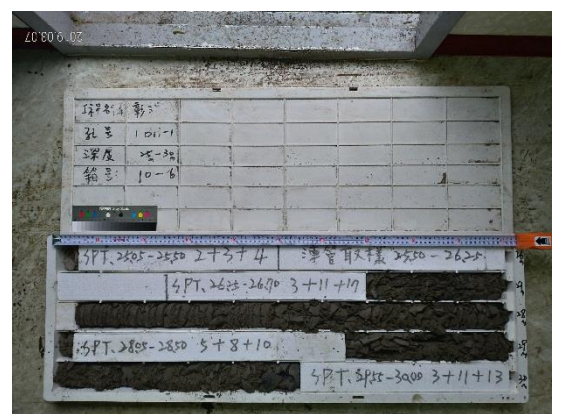 2019.03.07
孔号 10ii-1
深度 25-30
箱号: 10-6
SPT、2505-2550 2+3+4 薄管取樣 2550-2625
SPT、2625-2670 3+11+17
SPT、2805-2850 5+8+10
SPT、2955-3000 3+11+13